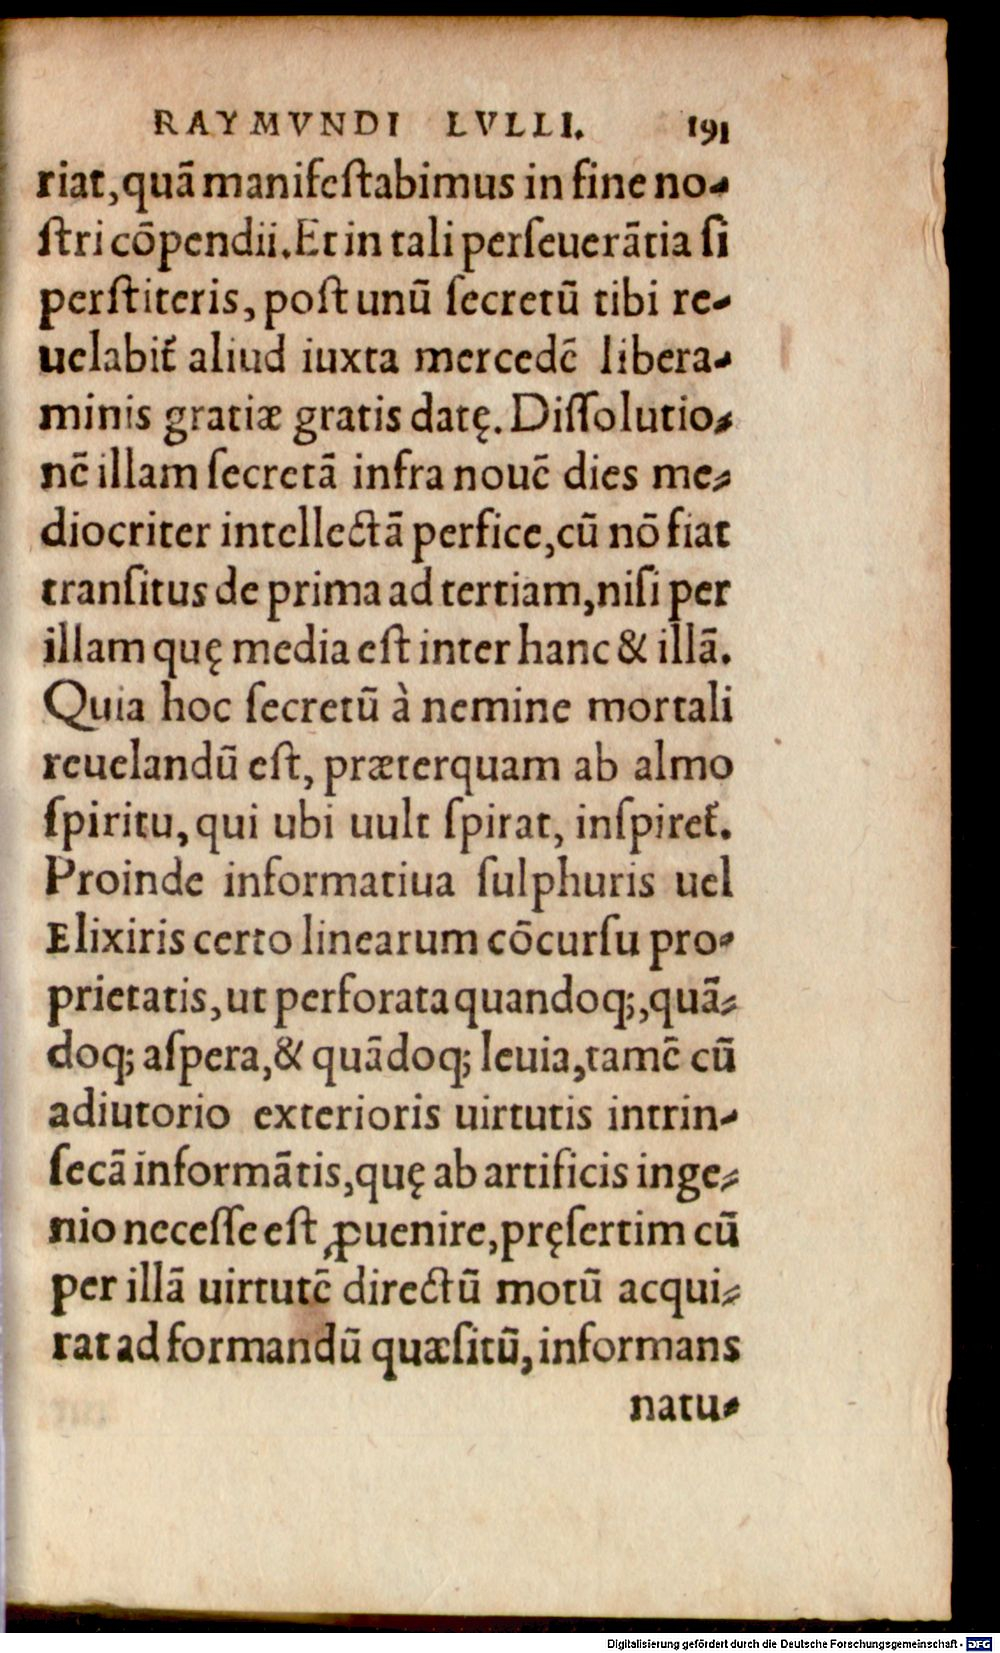 RAYMVNDI LVLLI. 191
riat, quā manifeſtabimus in fine no-
ſtri cōpendii. Et in tali perſeuerātia ſi
perſtiteris, poſt unū ſecretū tibi re-
uelabit᷑ aliud iuxta mercedē libera-
minis gratiæ gratis datę. Diſſolutio-
nē illam ſecretā infra nouē dies me-
diocriter intellectā perfice, cū nō fiat
tranſitus de prima ad tertiam, niſi per
illam quę media eſt inter hanc & illā.
Quia hoc ſecretū à nemine mortali
reuelandū eſt, præterquam ab almo
ſpiritu, qui ubi uult ſpirat, inſpiret᷑.
Proinde informatiua ſulphuris uel
Elixiris certo linearum cōcurſu pro-
prietatis, ut perforata quandoq;, quā-
doq; aſpera, & quādoq; leuia, tamē cū
adiutorio exterioris uirtutis intrin-
ſecā informātis, quę ab artificis inge-
nio neceſſe eſt ꝓuenire, pręſertim cū
per illā uirtutē directū motū acqui-
rat ad formandū quæſitū, informans
natu-
Digitalisierung gefördert durch die Deutsche Forschungsgemeinschaft - DFG